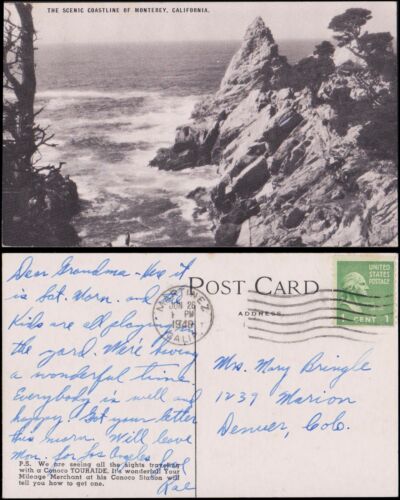 THE SCENIC COASTLINE OF MONTEREY, CALIFORNIA.
Dear Grandma - Here it
is Sat. Morn. and
Kids are all playing in
the yard. We're having
a wonderful time.
Everybody is well and
happy. Got your letter
this morn. Will leave
Mon. for Los Angeles
Love
P.S. We are seeing all the sights traveling
with a Conoco TOURAIDE. It's wonderful! Your
Mileage Merchant at his Conoco Station will
tell you how to get one.
POST CARD
ADDRESS
MARTINEZ
JUN 26
PM
1948
CALIF.
UNITED
STATES
POSTAGE
1 CENT 1
Mrs. Mary Bringle
1239 Marion
Denver, Colo.